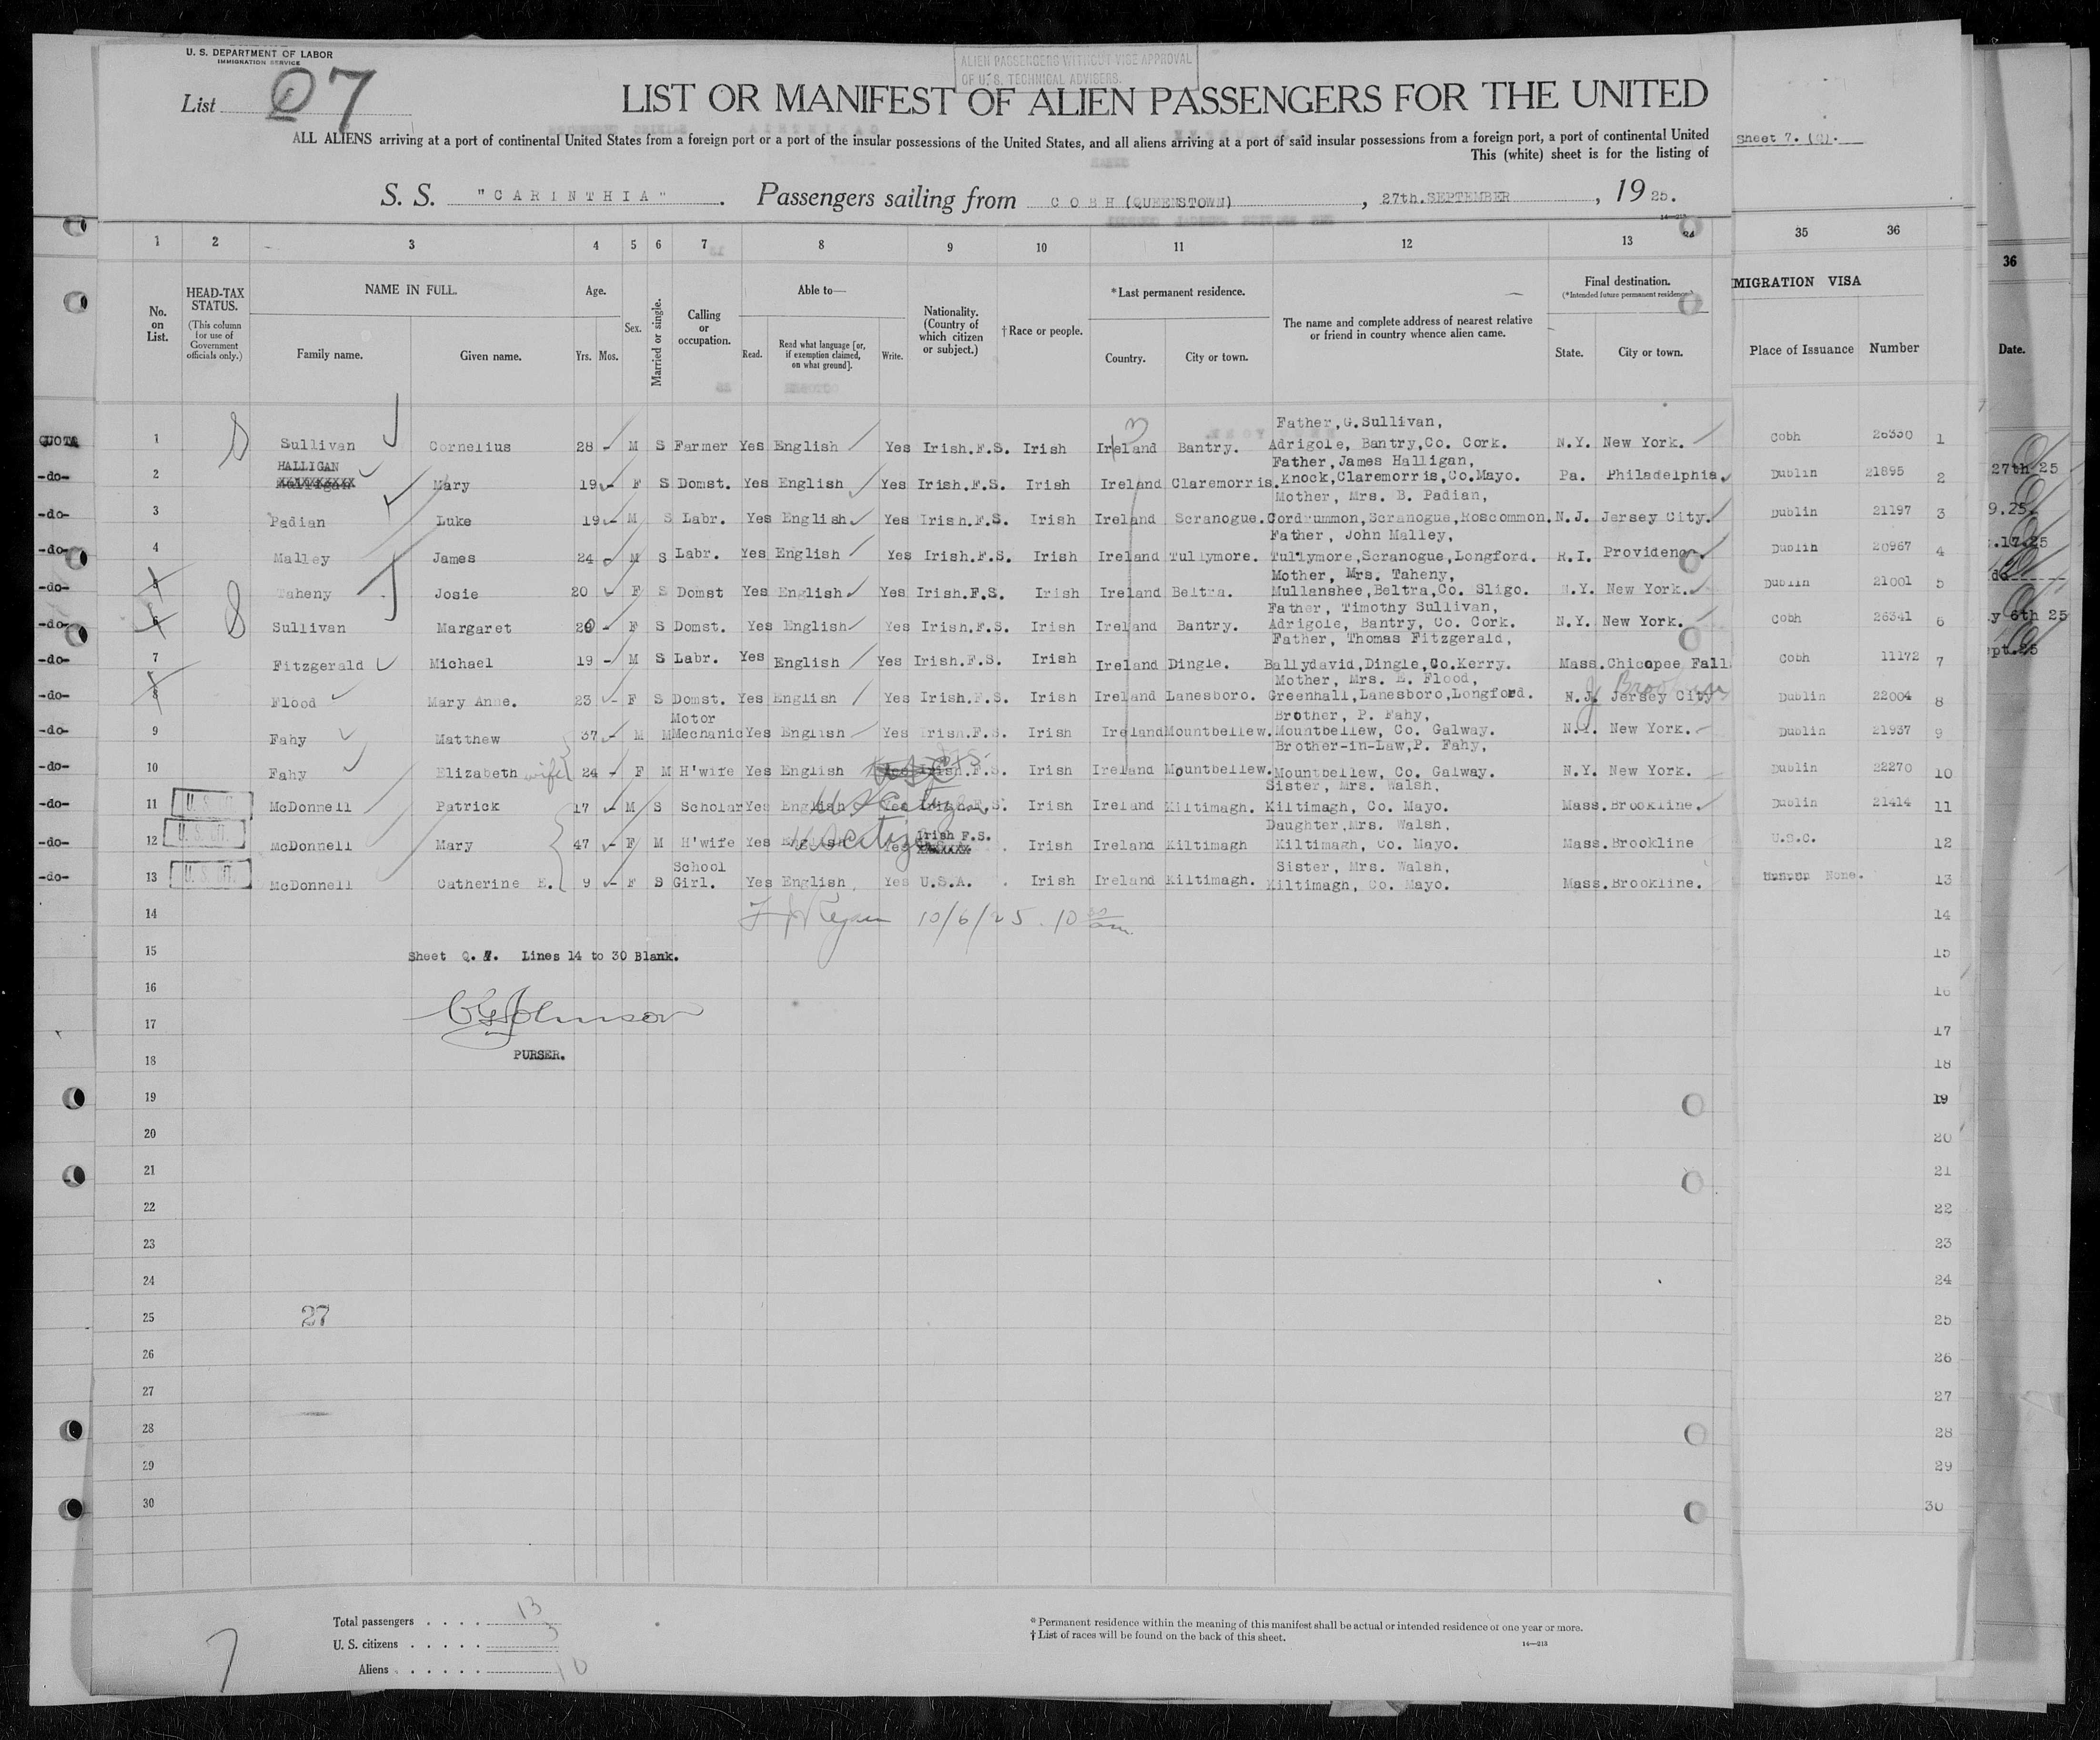 U. S. DEPARTMENT OF LABOR
IMMIGRATION SERVICE
ALIEN PASSENGERS WITHOUT VISE APPROVAL
OF U.S. TECHNICAL ADVISERS.
List Q7
LIST OR MANIFEST OF ALIEN PASSENGERS FOR THE UNITED
ALL ALIENS arriving at a port of continental United States from a foreign port or a port of the insular possessions of the United States, and all aliens arriving at a port of said insular possessions from a foreign port, a port of continental United
This (white) sheet is for the listing of
Sheet 7. (Q).
S. S. "CARINTHIA". Passengers sailing from COBH (QUEENSTOWN), 27th. SEPTEMBER, 1925.
14—213
1 2 3 4 5 6 7 8 9 10 11 12 13 35 36
36
No. on List.
HEAD-TAX STATUS.
(This column for use of Government officials only.)
NAME IN FULL.
Family name. Given name.
Age.
Yrs. Mos.
Sex.
Married or single.
Calling or occupation.
Able to—
Read. Read what language [or, if exemption claimed, on what ground]. Write.
Nationality. (Country of which citizen or subject.)
†Race or people.
*Last permanent residence.
Country. City or town.
The name and complete address of nearest relative or friend in country whence alien came.
Final destination.
(*Intended future permanent residence.)
State. City or town.
MIGRATION VISA
Place of Issuance Number
Date.
Father, G. Sullivan,
QUOTA 1 Sullivan Cornelius 28 M S Farmer Yes English Yes Irish.F.S. Irish Ireland Bantry. Adrigole, Bantry, Co. Cork. N.Y. New York. Cobh 26330 1
HALLIGAN Father, James Halligan,
-do- 2 Mary 19 F S Domst. Yes English Yes Irish.F.S. Irish Ireland Claremorris. Knock, Claremorris, Co. Mayo. Pa. Philadelphia. Dublin 21895 2 27th 25
Mother, Mrs. B. Padian,
-do- 3 Padian Luke 19 M S Labr. Yes English Yes Irish.F.S. Irish Ireland Scranogue. Cordrummon, Scranogue, Roscommon. N.J. Jersey City. Dublin 21197 3 9.25.
Father, John Malley,
-do- 4 Malley James 24 M S Labr. Yes English Yes Irish.F.S. Irish Ireland Tullymore. Tullymore, Scranogue, Longford. R.I. Providence. Dublin 20967 4 .17.25
Mother, Mrs. Taheny,
-do- 5 Taheny Josie 20 F S Domst Yes English Yes Irish.F.S. Irish Ireland Beltra. Mullanshee, Beltra, Co. Sligo. N.Y. New York. Dublin 21001 5 do
Father, Timothy Sullivan,
-do- 6 Sullivan Margaret 20 F S Domst. Yes English Yes Irish.F.S. Irish Ireland Bantry. Adrigole, Bantry, Co. Cork. N.Y. New York. Cobh 26341 6 y 6th 25
Father, Thomas Fitzgerald,
-do- 7 Fitzgerald Michael 19 M S Labr. Yes English Yes Irish.F.S. Irish Ireland Dingle. Ballydavid, Dingle, Co. Kerry. Mass. Chicopee Fall Cobh 11172 7 ept. 25
Mother, Mrs. E. Flood,
-do- 8 Flood Mary Anne. 23 F S Domst. Yes English Yes Irish.F.S. Irish Ireland Lanesboro. Greenhall, Lanesboro, Longford. N.J. Jersey City Dublin 22004 8
Motor Brother, P. Fahy,
-do- 9 Fahy Matthew 37 M M Mechanic Yes English Yes Irish.F.S. Irish Ireland Mountbellew. Mountbellew, Co. Galway. N.Y. New York. Dublin 21937 9
Brother-in-Law, P. Fahy,
-do- 10 Fahy Elizabeth wife 24 F M H'wife Yes English Yes Irish.F.S. Irish Ireland Mountbellew. Mountbellew, Co. Galway. N.Y. New York. Dublin 22270 10
Sister, Mrs. Walsh,
-do- 11 U.S. CIT. McDonnell Patrick 17 M S Scholar Yes English Yes Irish.F.S. Irish Ireland Kiltimagh. Kiltimagh, Co. Mayo. Mass. Brookline. Dublin 21414 11
US citizen
Daughter, Mrs. Walsh,
-do- 12 U.S. CIT. McDonnell Mary 47 F M H'wife Yes English Yes Irish F.S. Irish Ireland Kiltimagh Kiltimagh, Co. Mayo. Mass. Brookline U.S.C. 12
US citizen
School Sister, Mrs. Walsh,
-do- 13 U.S. CIT. McDonnell Catherine E. 9 F S Girl. Yes English Yes U.S.A. Irish Ireland Kiltimagh. Kiltimagh, Co. Mayo. Mass. Brookline. None. 13
14 10/6/25. 10 30 am. 14
15 Sheet Q. 7. Lines 14 to 30 Blank. 15
16 16
17 CG Johnson 17
18 PURSER. 18
19 19
20 20
21 21
22 22
23 23
24 24
25 27 25
26 26
27 27
28 28
29 29
30 30
Total passengers . . . . 13
U. S. citizens . . . . . 3
Aliens . . . . . . 10
7
* Permanent residence within the meaning of this manifest shall be actual or intended residence of one year or more.
† List of races will be found on the back of this sheet.
14—213